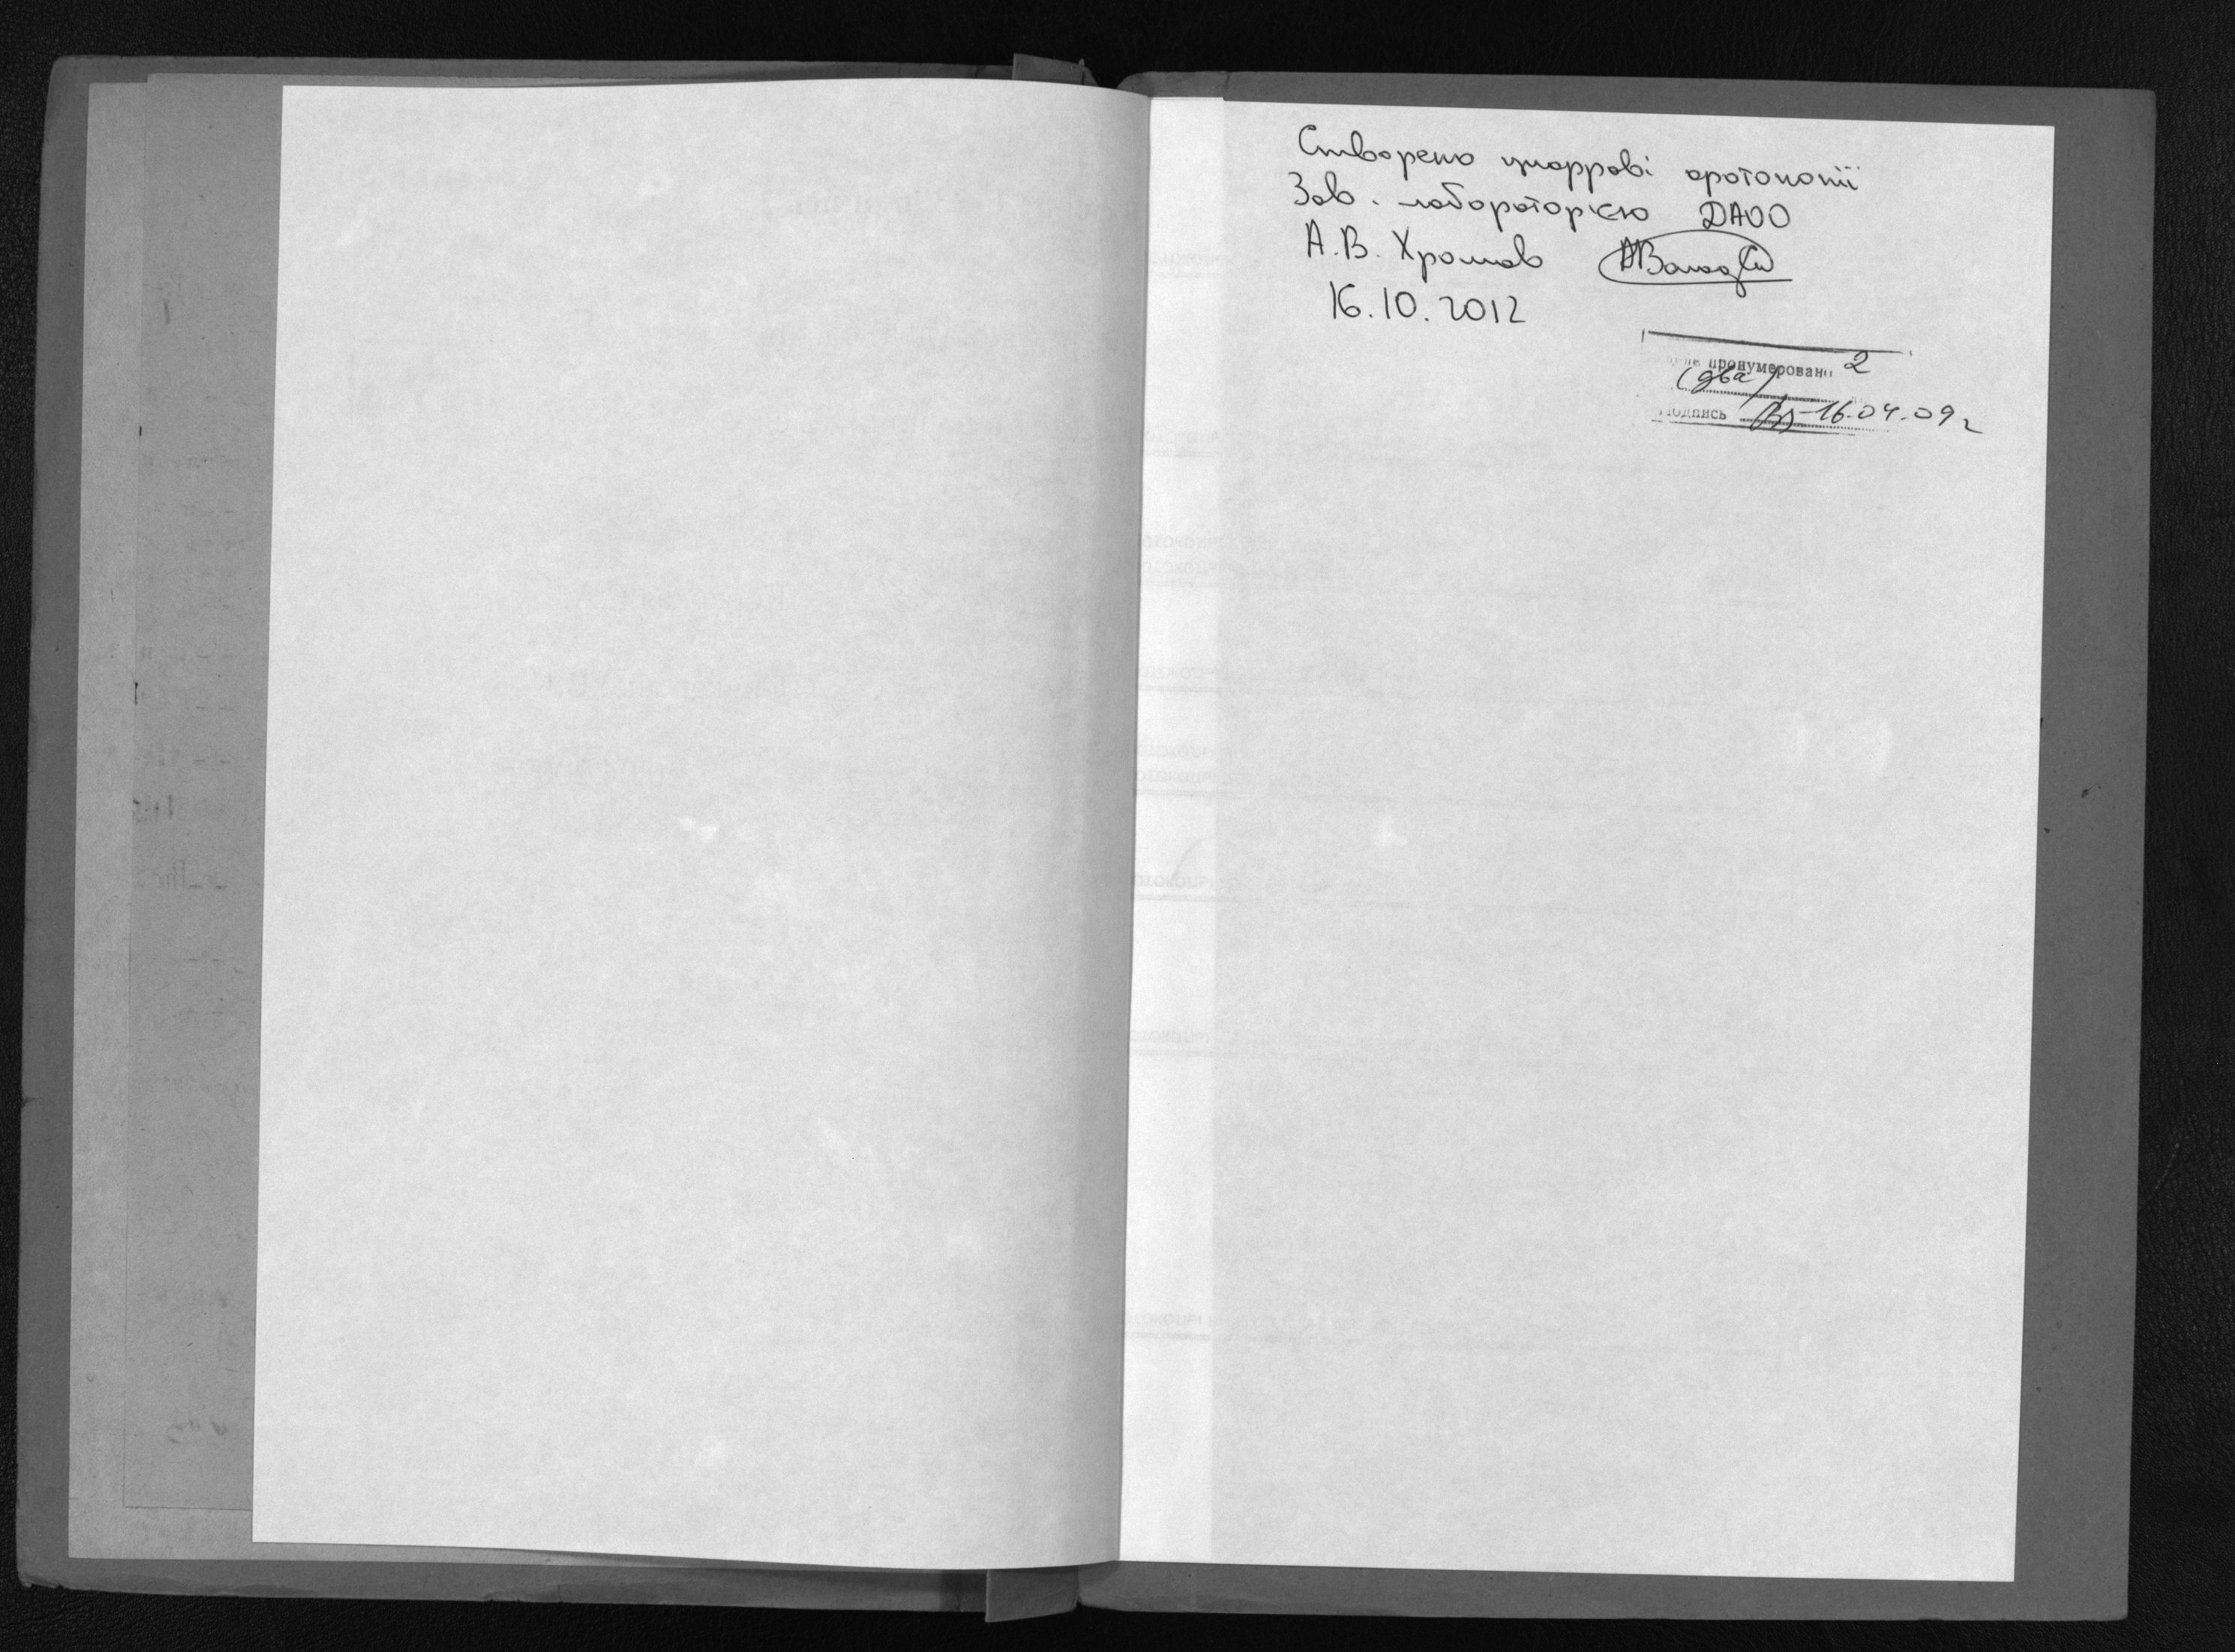 Створено цифрові фотокопії
Зав. лабораторією ДАОО
А.В. Хромов
16.10.2012
пронумеровано 2
(два)
Подпись 16.04.09г